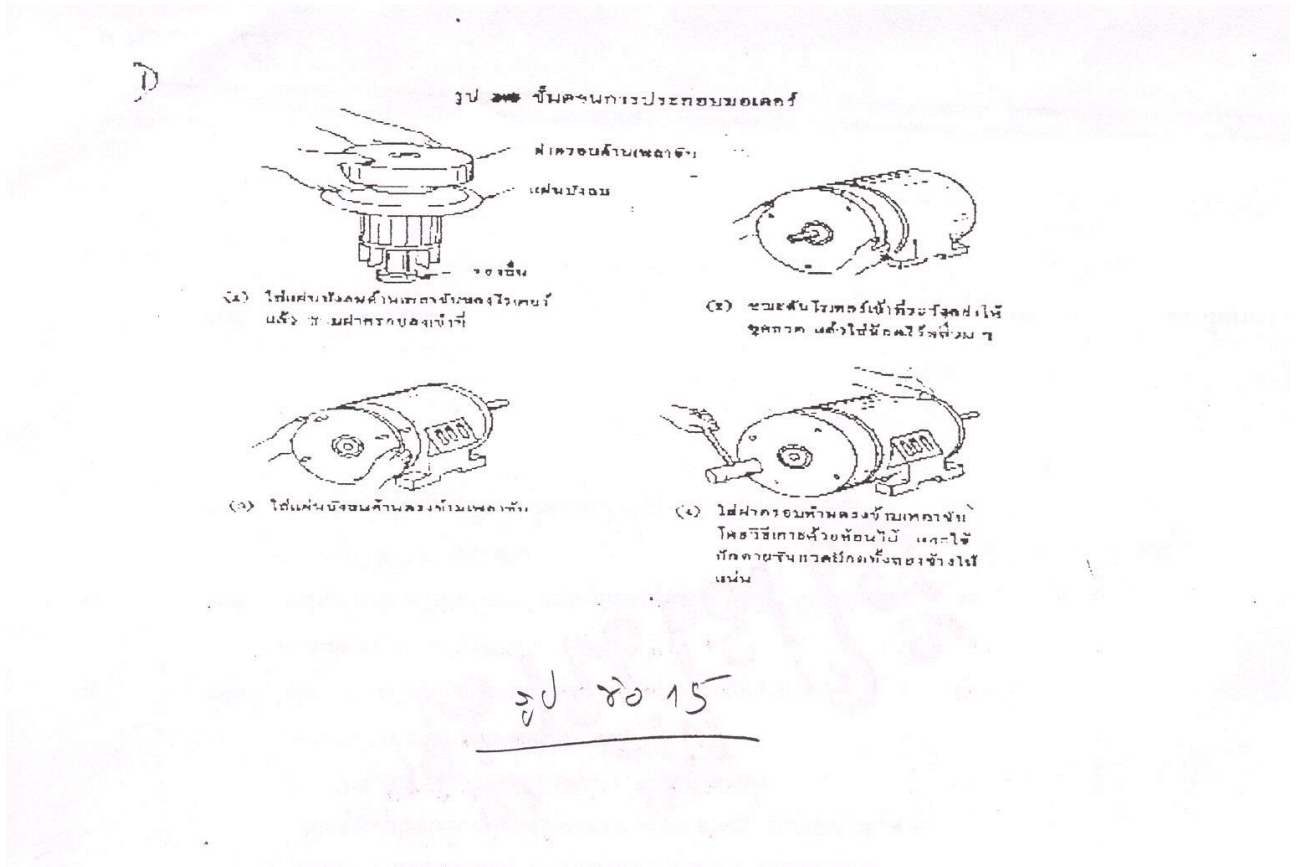 รูป ขั้นตอนการประกอบมอเตอร์
ฝาครอบด้านเพลาขับ
แผ่นบังลม
รองลื่น
(1) ใส่แผ่นบังลมด้านเพลาขับของโรเตอร์
แล้ว สวมฝาครอบลงเข้าที่
(2) ขณะดันโรเตอร์เข้าที่ระวังอย่าให้
ขูดลวด แล้วใส่น๊อตไว้หลวม ๆ
(3) ใส่แผ่นบังลมด้านตรงข้ามเพลาขับ
(4) ใส่ฝาครอบด้านตรงข้ามเพลาขับ
โดยวิธีเคาะด้วยฆ้อนไม้ และใช้
ทั้งสองข้างให้
แน่น
รูป ข้อ 15